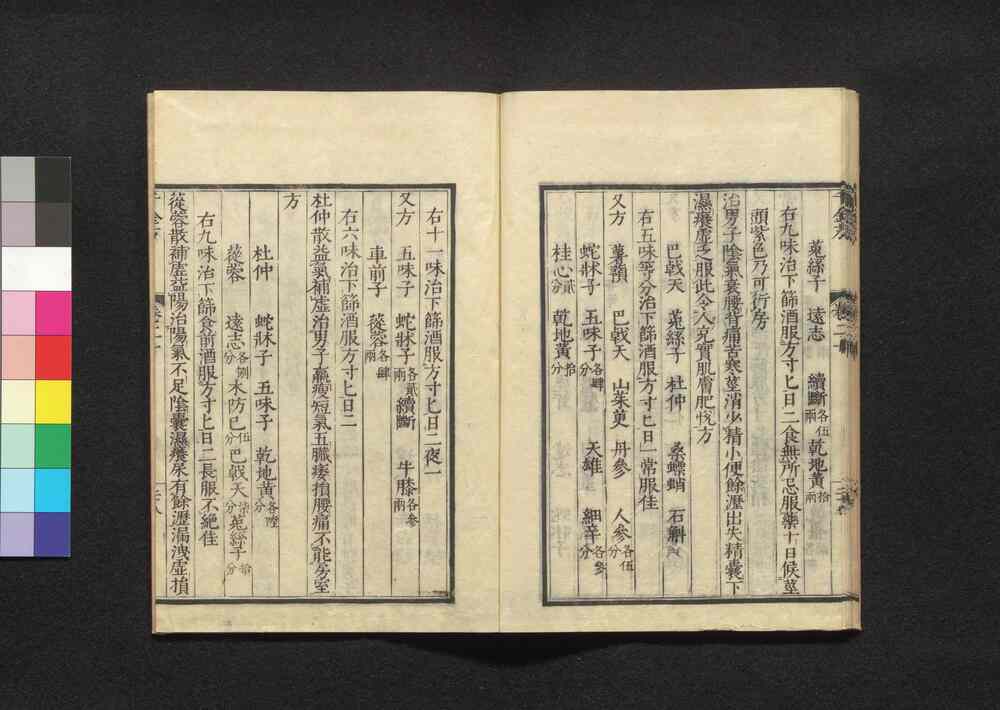 菟絲子 遠志 續斷各伍兩 乾地黃拾兩
右九味治下篩酒服方寸匕日二食無所忌服藥十日候莖
頭紫色乃可行房
治男子陰氣衰腰背痛苦寒莖消少精小便餘瀝出失精囊下
濕癢虛乏服此令人充實肌膚肥悅方
巴戟天 菟絲子 杜仲 桑螵蛸 石斛
右五味等分治下篩酒服方寸匕日一常服佳
又方 薯蕷 巴戟天 山茱萸 丹參 人參各伍分
蛇牀子 五味子各肆分 天雄 細辛各參分
桂心貳分 乾地黃拾分
右十一味治下篩酒服方寸匕日二夜一
又方 五味子 蛇牀子各貳兩 續斷 牛膝各參兩
車前子 蓯蓉各肆兩
右六味治下篩酒服方寸匕日二
杜仲散益氣補虛治男子羸瘦短氣五臟痿損腰痛不能房室
方
杜仲 蛇牀子 五味子 乾地黃各陸分
蓯蓉 遠志各捌分 木防己伍分 巴戟天柒分 菟絲子拾分
右九味治下篩食前酒服方寸匕日二長服不絕佳
蓯蓉散補虛益陽治陽氣不足陰囊濕癢尿有餘瀝漏洩虛損